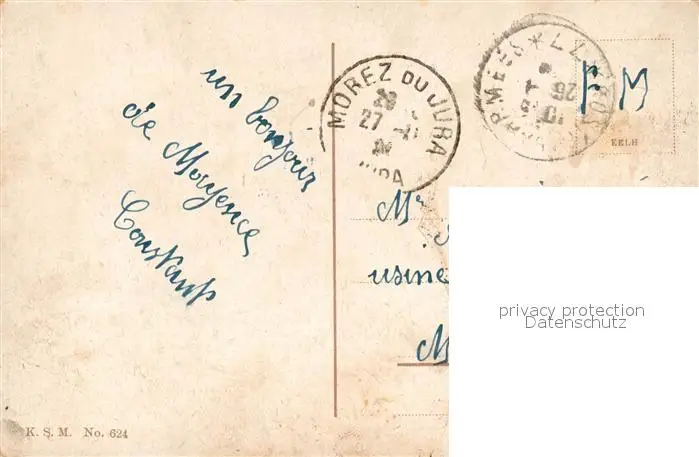 un bonjour
de Mayence
Constant
MOREZ DU JURA
27
JURA
ARMEES *
F M
EELH
Mr
usine
M
privacy protection
Datenschutz
K. S. M. No. 624